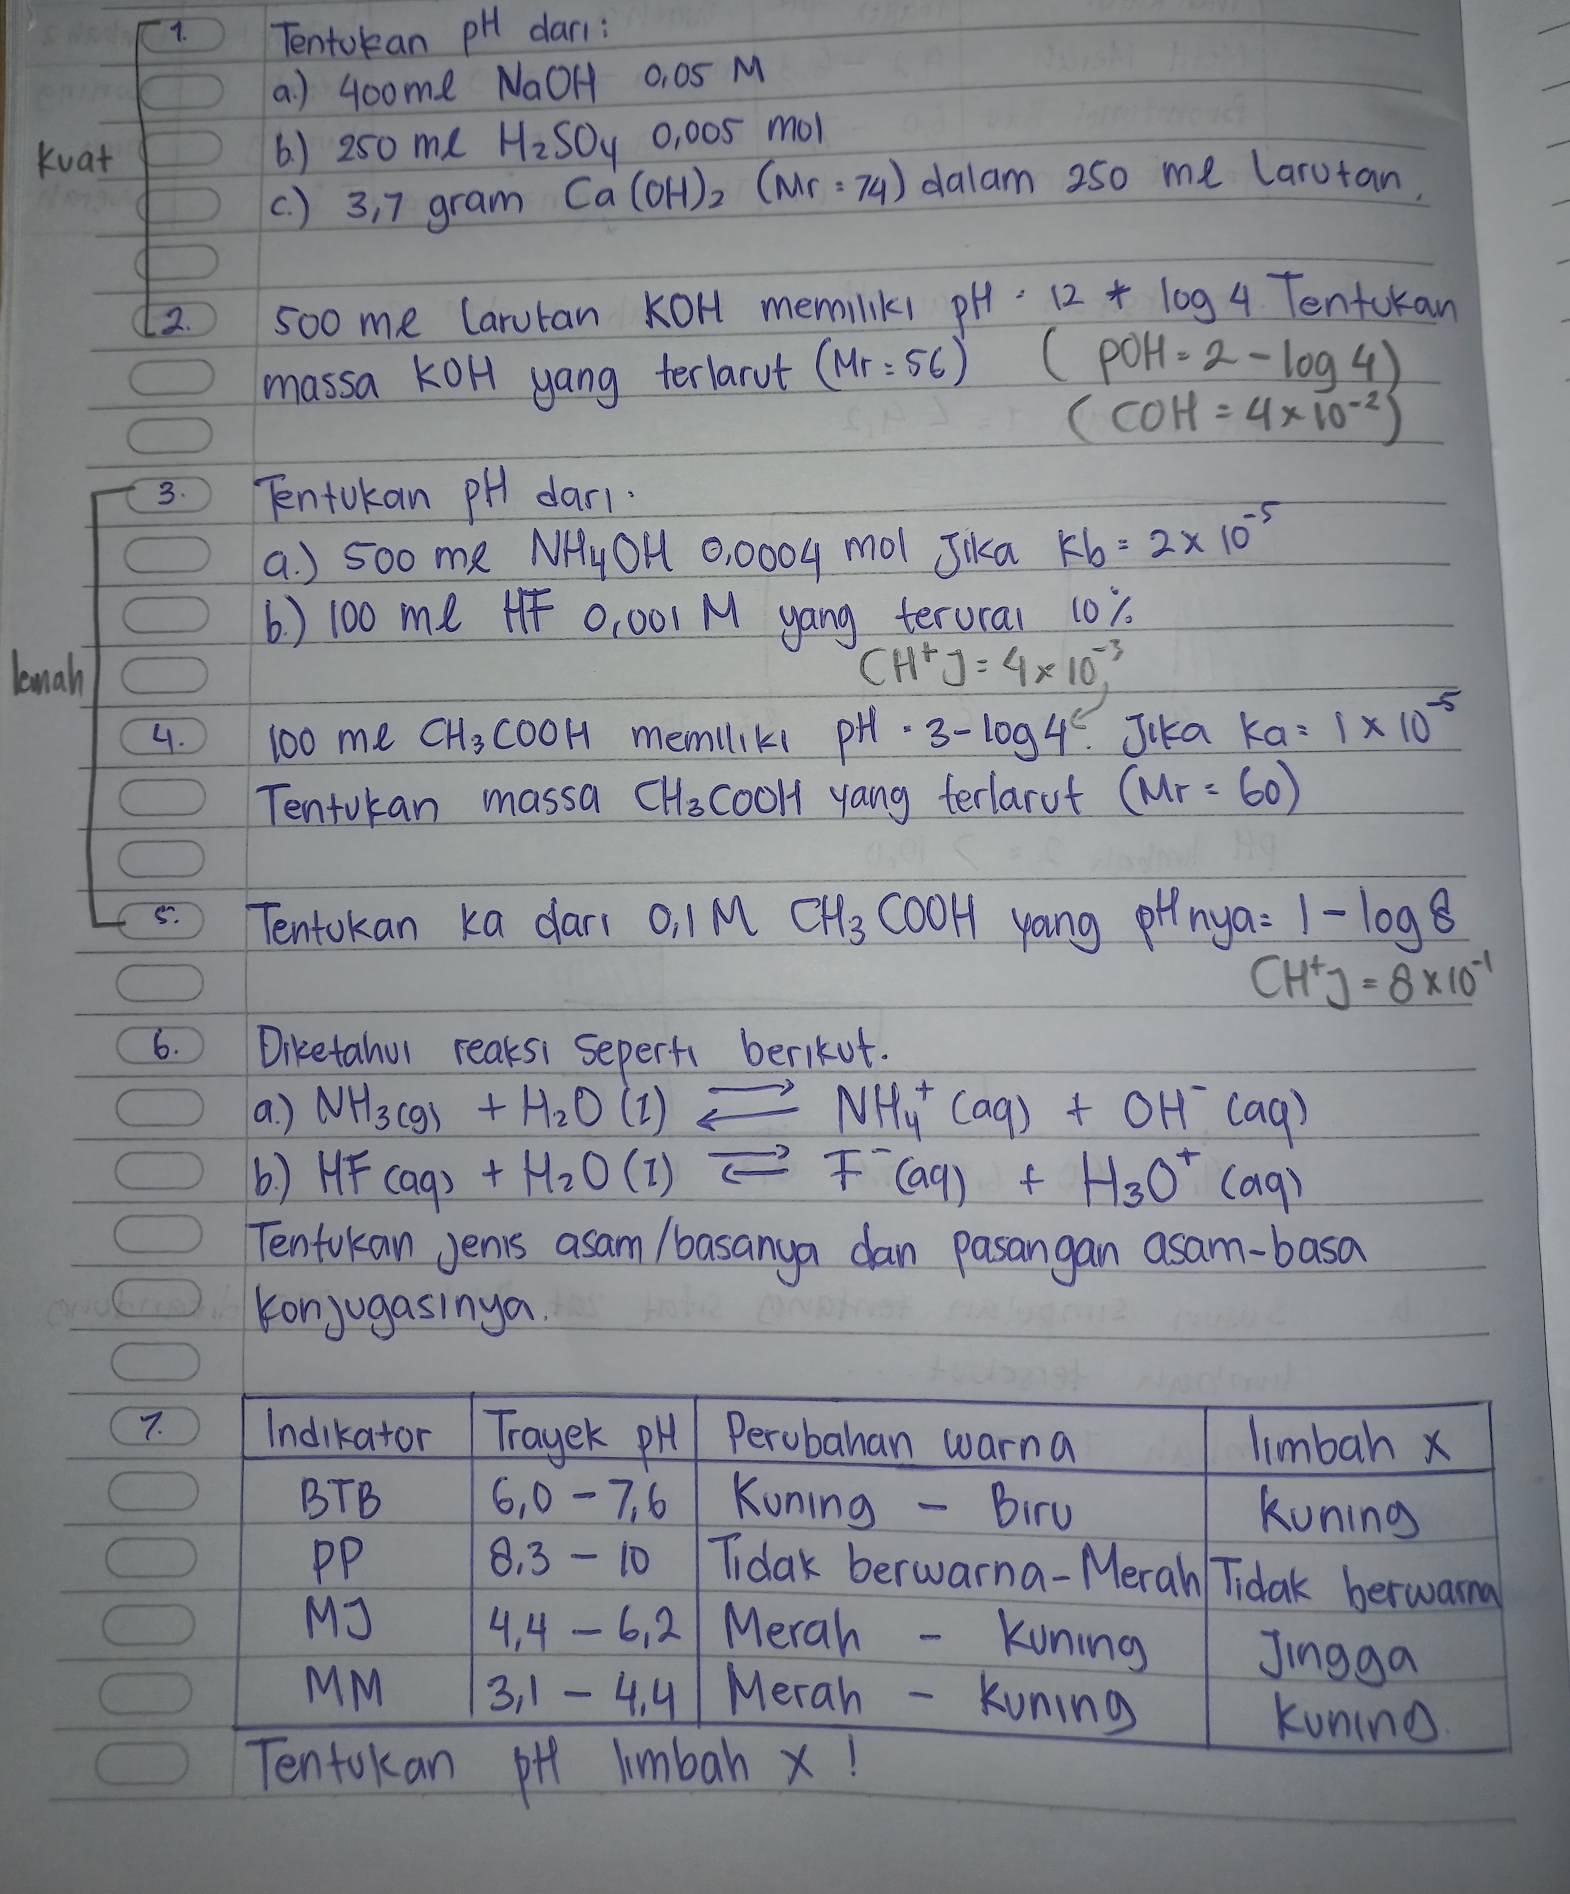 1. Tentukan pH dari:
a.) 400 ml NaOH 0,05 M
b.) 250 ml H₂SO₄ 0,005 mol
Kuat
c.) 3,7 gram Ca(OH)₂ (Mr = 74) dalam 250 ml larutan.
2. 500 ml larutan KOH memiliki pH = 12 + log 4. Tentukan
massa KOH yang terlarut (Mr = 56) (pOH = 2 - log 4)
(COH = 4 x 10⁻²)
3. Tentukan pH dari:
a.) 500 ml NH₄OH 0,0004 mol Jika Kb = 2 x 10⁻⁵
b.) 100 ml HF 0,001 M yang terurai 10%
[H⁺] = 4 x 10⁻³
lemah
4. 100 ml CH₃COOH memiliki pH = 3 - log 4. Jika Ka = 1 x 10⁻⁵
Tentukan massa CH₃COOH yang terlarut (Mr = 60)
5. Tentukan Ka dari 0,1 M CH₃COOH yang pHnya = 1 - log 8
[H⁺] = 8 x 10⁻¹
6. Diketahui reaksi seperti berikut.
a.) NH₃(g) + H₂O (l) ⇌ NH₄⁺ (aq) + OH⁻ (aq)
b.) HF (aq) + H₂O (l) ⇌ F⁻ (aq) + H₃O⁺ (aq)
Tentukan jenis asam/basanya dan pasangan asam-basa
konjugasinya.
7. Indikator Trayek pH Perubahan warna limbah x
BTB 6,0 - 7,6 Kuning - Biru Kuning
PP 8,3 - 10 Tidak berwarna - Merah Tidak berwarna
MJ 4,4 - 6,2 Merah - Kuning Jingga
MM 3,1 - 4,4 Merah - Kuning Kuning.
Tentukan pH limbah x !